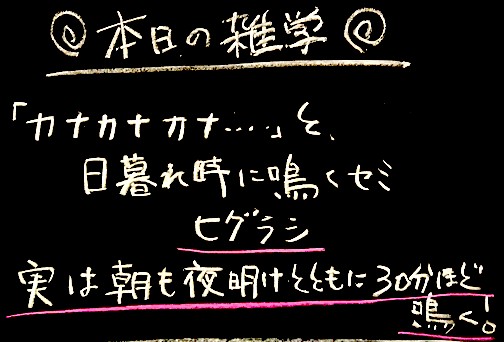 本日の雑学
「カナカナカナ……」と、
日暮れ時に鳴くセミ
ヒグラシ
実は朝も夜明けとともに30分ほど
鳴く!。